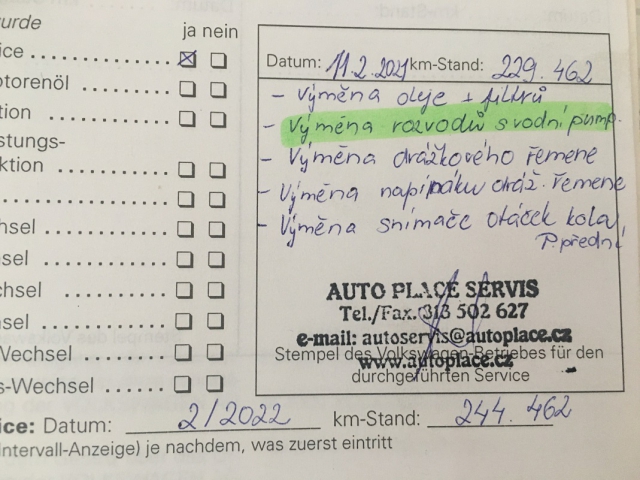 wurde
ja nein
ice
otorenöl
tion
stungs-
ktion
hsel
sel
chsel
sel
Wechsel
s-Wechsel
Datum: 11.2.2021 km-Stand: 229.462
- Výměna oleje + filtrů
- Výměna rozvodů s vodní pump.
- Výměna drážkového řemene
- Výměna napínáku dráž. řemene
- Výměna snímače otáček kola
P. přední
AUTO PLACE SERVIS
Tel./Fax. 313 502 627
e-mail: autoservis@autoplace.cz
Stempel des Volkswagen-Betriebes für den
www.autoplace.cz
durchgeführten Service
ice: Datum: 2/2022 km-Stand: 244.462
Intervall-Anzeige) je nachdem, was zuerst eintritt